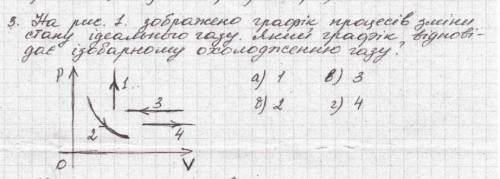 3. На рис. 1. зображено графік процесів зміни
стану ідеального газу. Який графік відпові-
дає ізобарному охолодженню газу?
P
1
2
3
4
0
V
а) 1   в) 3
б) 2   г) 4